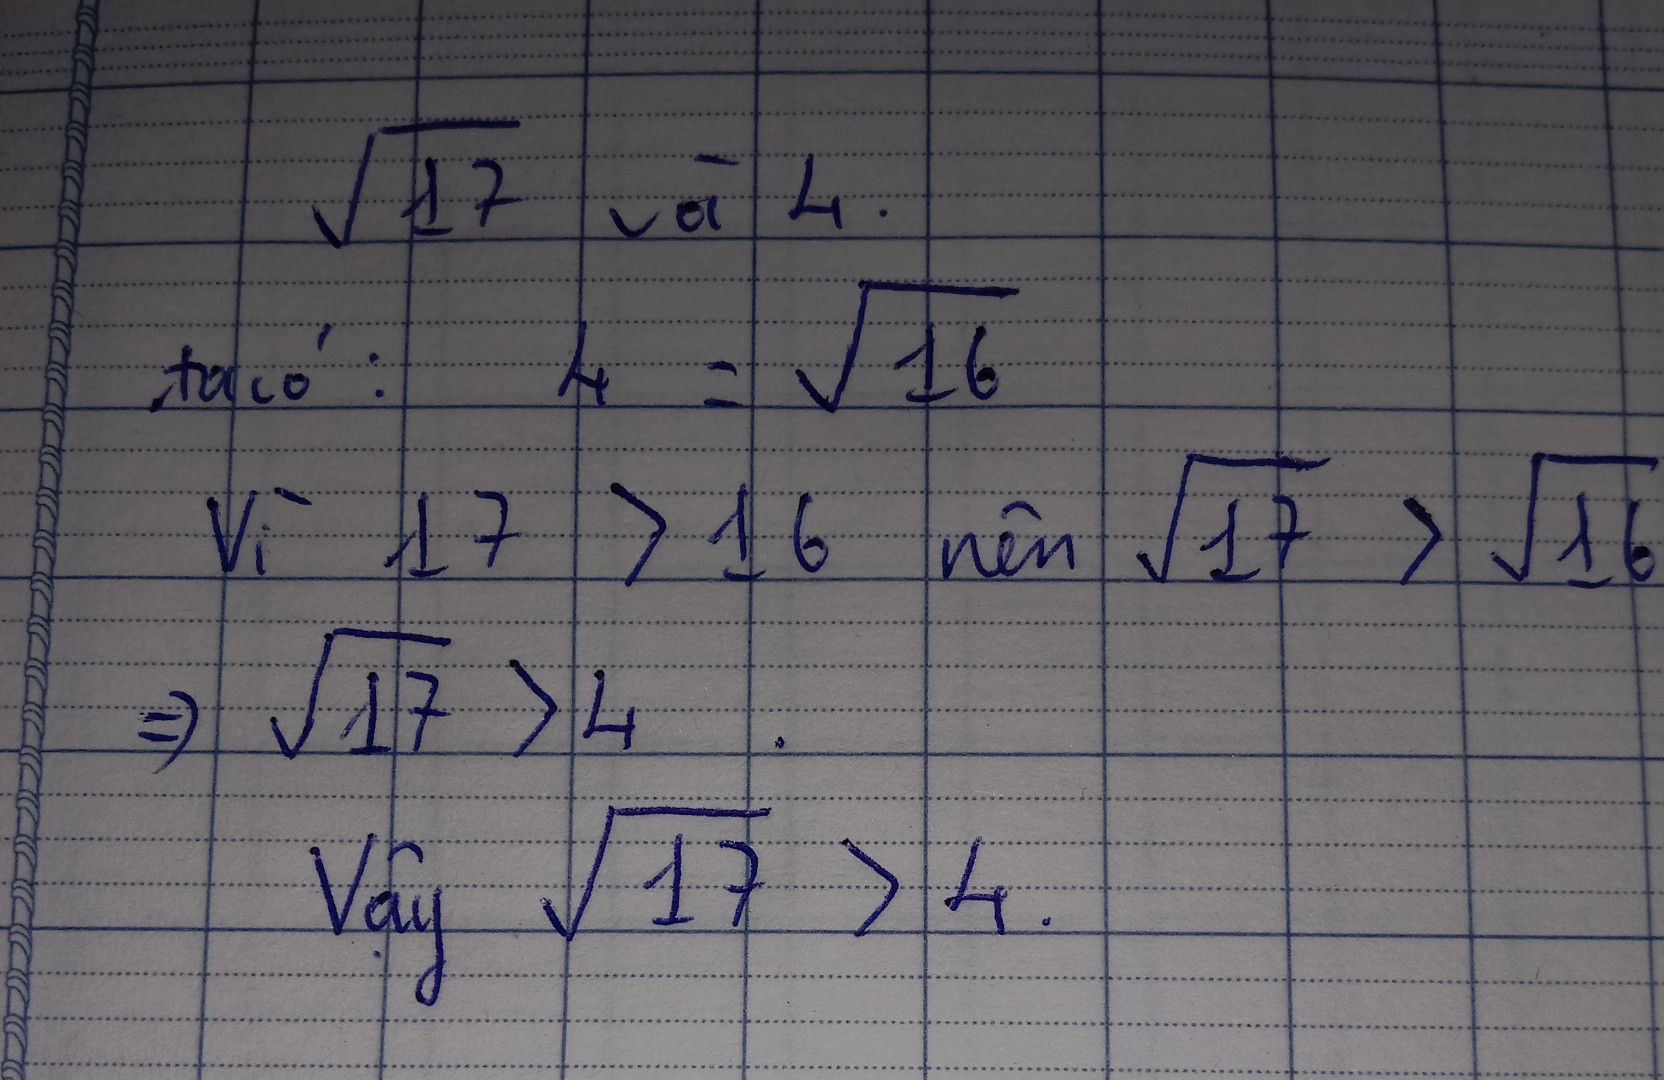 √17 và 4.
ta có: 4 = √16
Vì 17 > 16 nên √17 > √16
⇒ √17 > 4 .
Vậy √17 > 4.